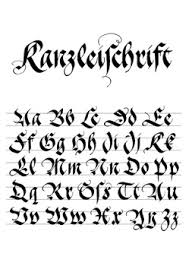 Kanzleiſchrift
Aa Bb Cc Dd Ee
Ff Gg Hh Ii Jj Kk
Ll Mm Nn Oo Pp
Qq Rr Sſs Tt Uu
Vv Ww Xx Yy Zz